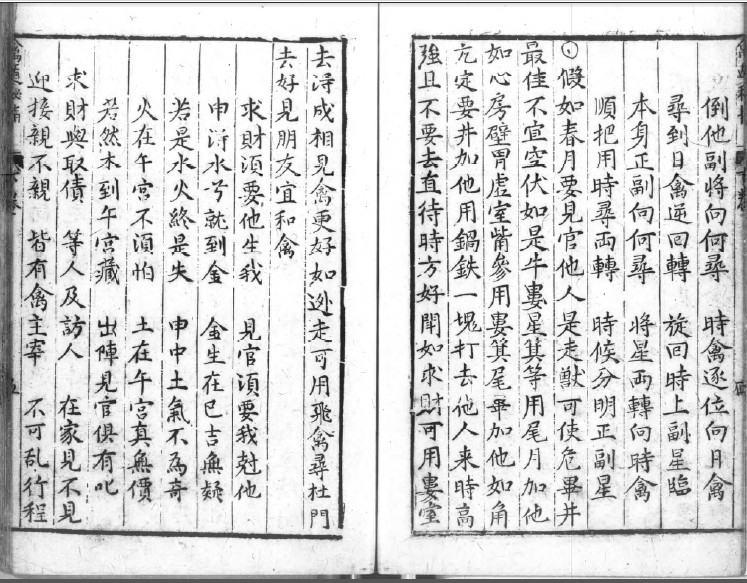 倒他副將向何尋　時禽逐位向日禽
尋到日禽逆回轉　旋回時上副星臨
本身正副向何尋　將星兩轉向時禽
順把用時尋兩轉　時候分明正副星
假如春月要見官他人是走獸可使危畢井
最佳不宜空伏如是牛婁星箕等用尾月加他
如心房壁胃虛室觜參用婁箕尾畢加他如角
亢定要井加他用鍋鉄一塊打去他人来時高
強且不要去直待時方好閗如求財可用婁室
去浔成相見禽更好如逊走可用飛禽尋杜門
去好見朋友宜和禽
求財湏要他生我　見官湏要我尅他
申浔水兮就到金　金生在巳吉無疑
若是水火終是失　申中土氣不為竒
火在午宮不湏怕　土在午宮真無價
若然木到午宮藏　出陣見官俱有叱
求財與取債　等人及訪人　在家見不見
迎接親不親　皆有禽主宰　不可乱行程